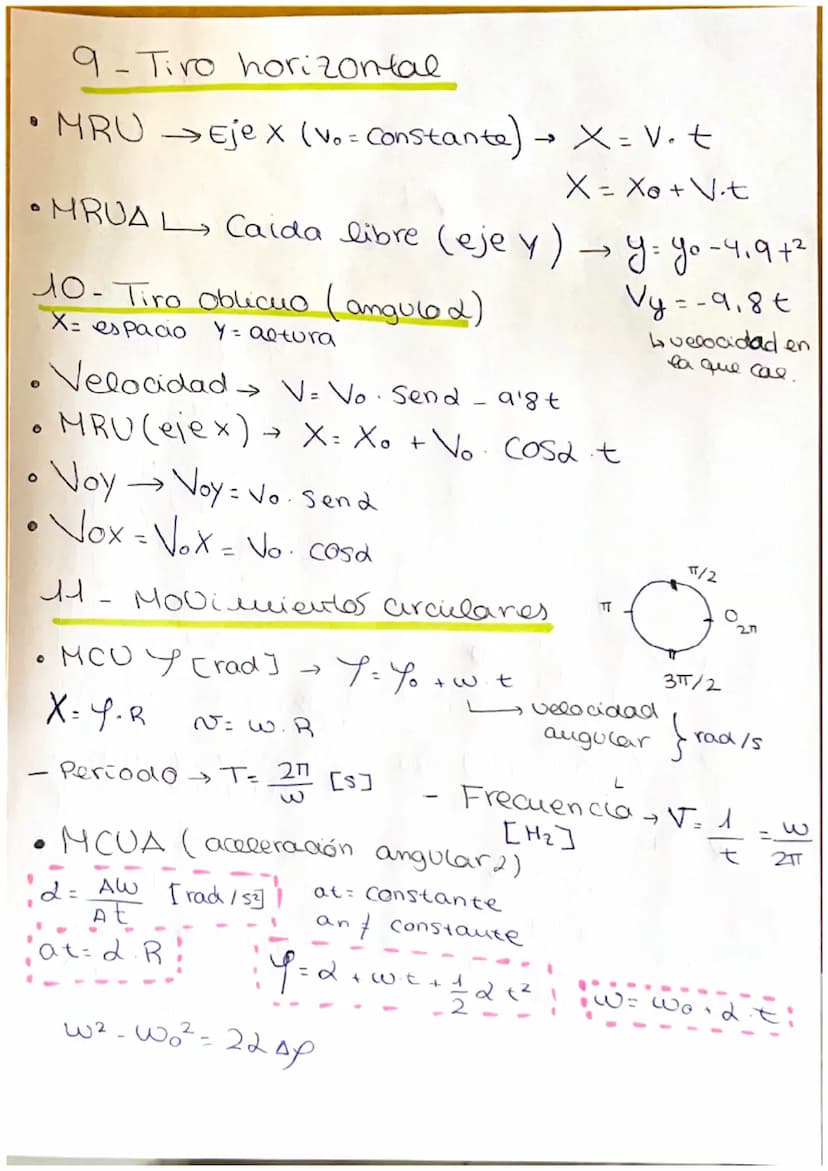 9 - Tiro horizontal
• MRU → Eje X (V₀ = constante) → X = V · t
X = X₀ + V·t
• MRUA ↳ Caida libre (eje y) → y = y₀ - 4,9 t²
Vy = -9,8 t
↳ velocidad en
la que cae.
10 - Tiro oblicuo (angulo α)
X = espacio Y = altura
• Velocidad → V = V₀ · sen α - 9'8 t
• MRU (eje x) → X = X₀ + V₀ · cos α · t
• Voy → Voy = V₀ · sen α
• Vox = V₀x = V₀ · cos α
11 - Movimientos circulares
π/2
π
0
2π
3π/2
• MCU φ [rad] → φ = φ₀ + w · t
↳ velocidad
angular } rad/s
X = φ · R v = w · R
- Periodo → T = 2π/w [s]
- Frecuencia → V = 1/t = w/2π
[Hz]
• MCUA (aceleración angular α)
α = Δw/Δt [rad/s²]
at = constante
an ≠ constante
at = α · R
φ = α + w·t + 1/2 α t²
w = w₀ + α · t
w² - w₀² = 2α Δφ